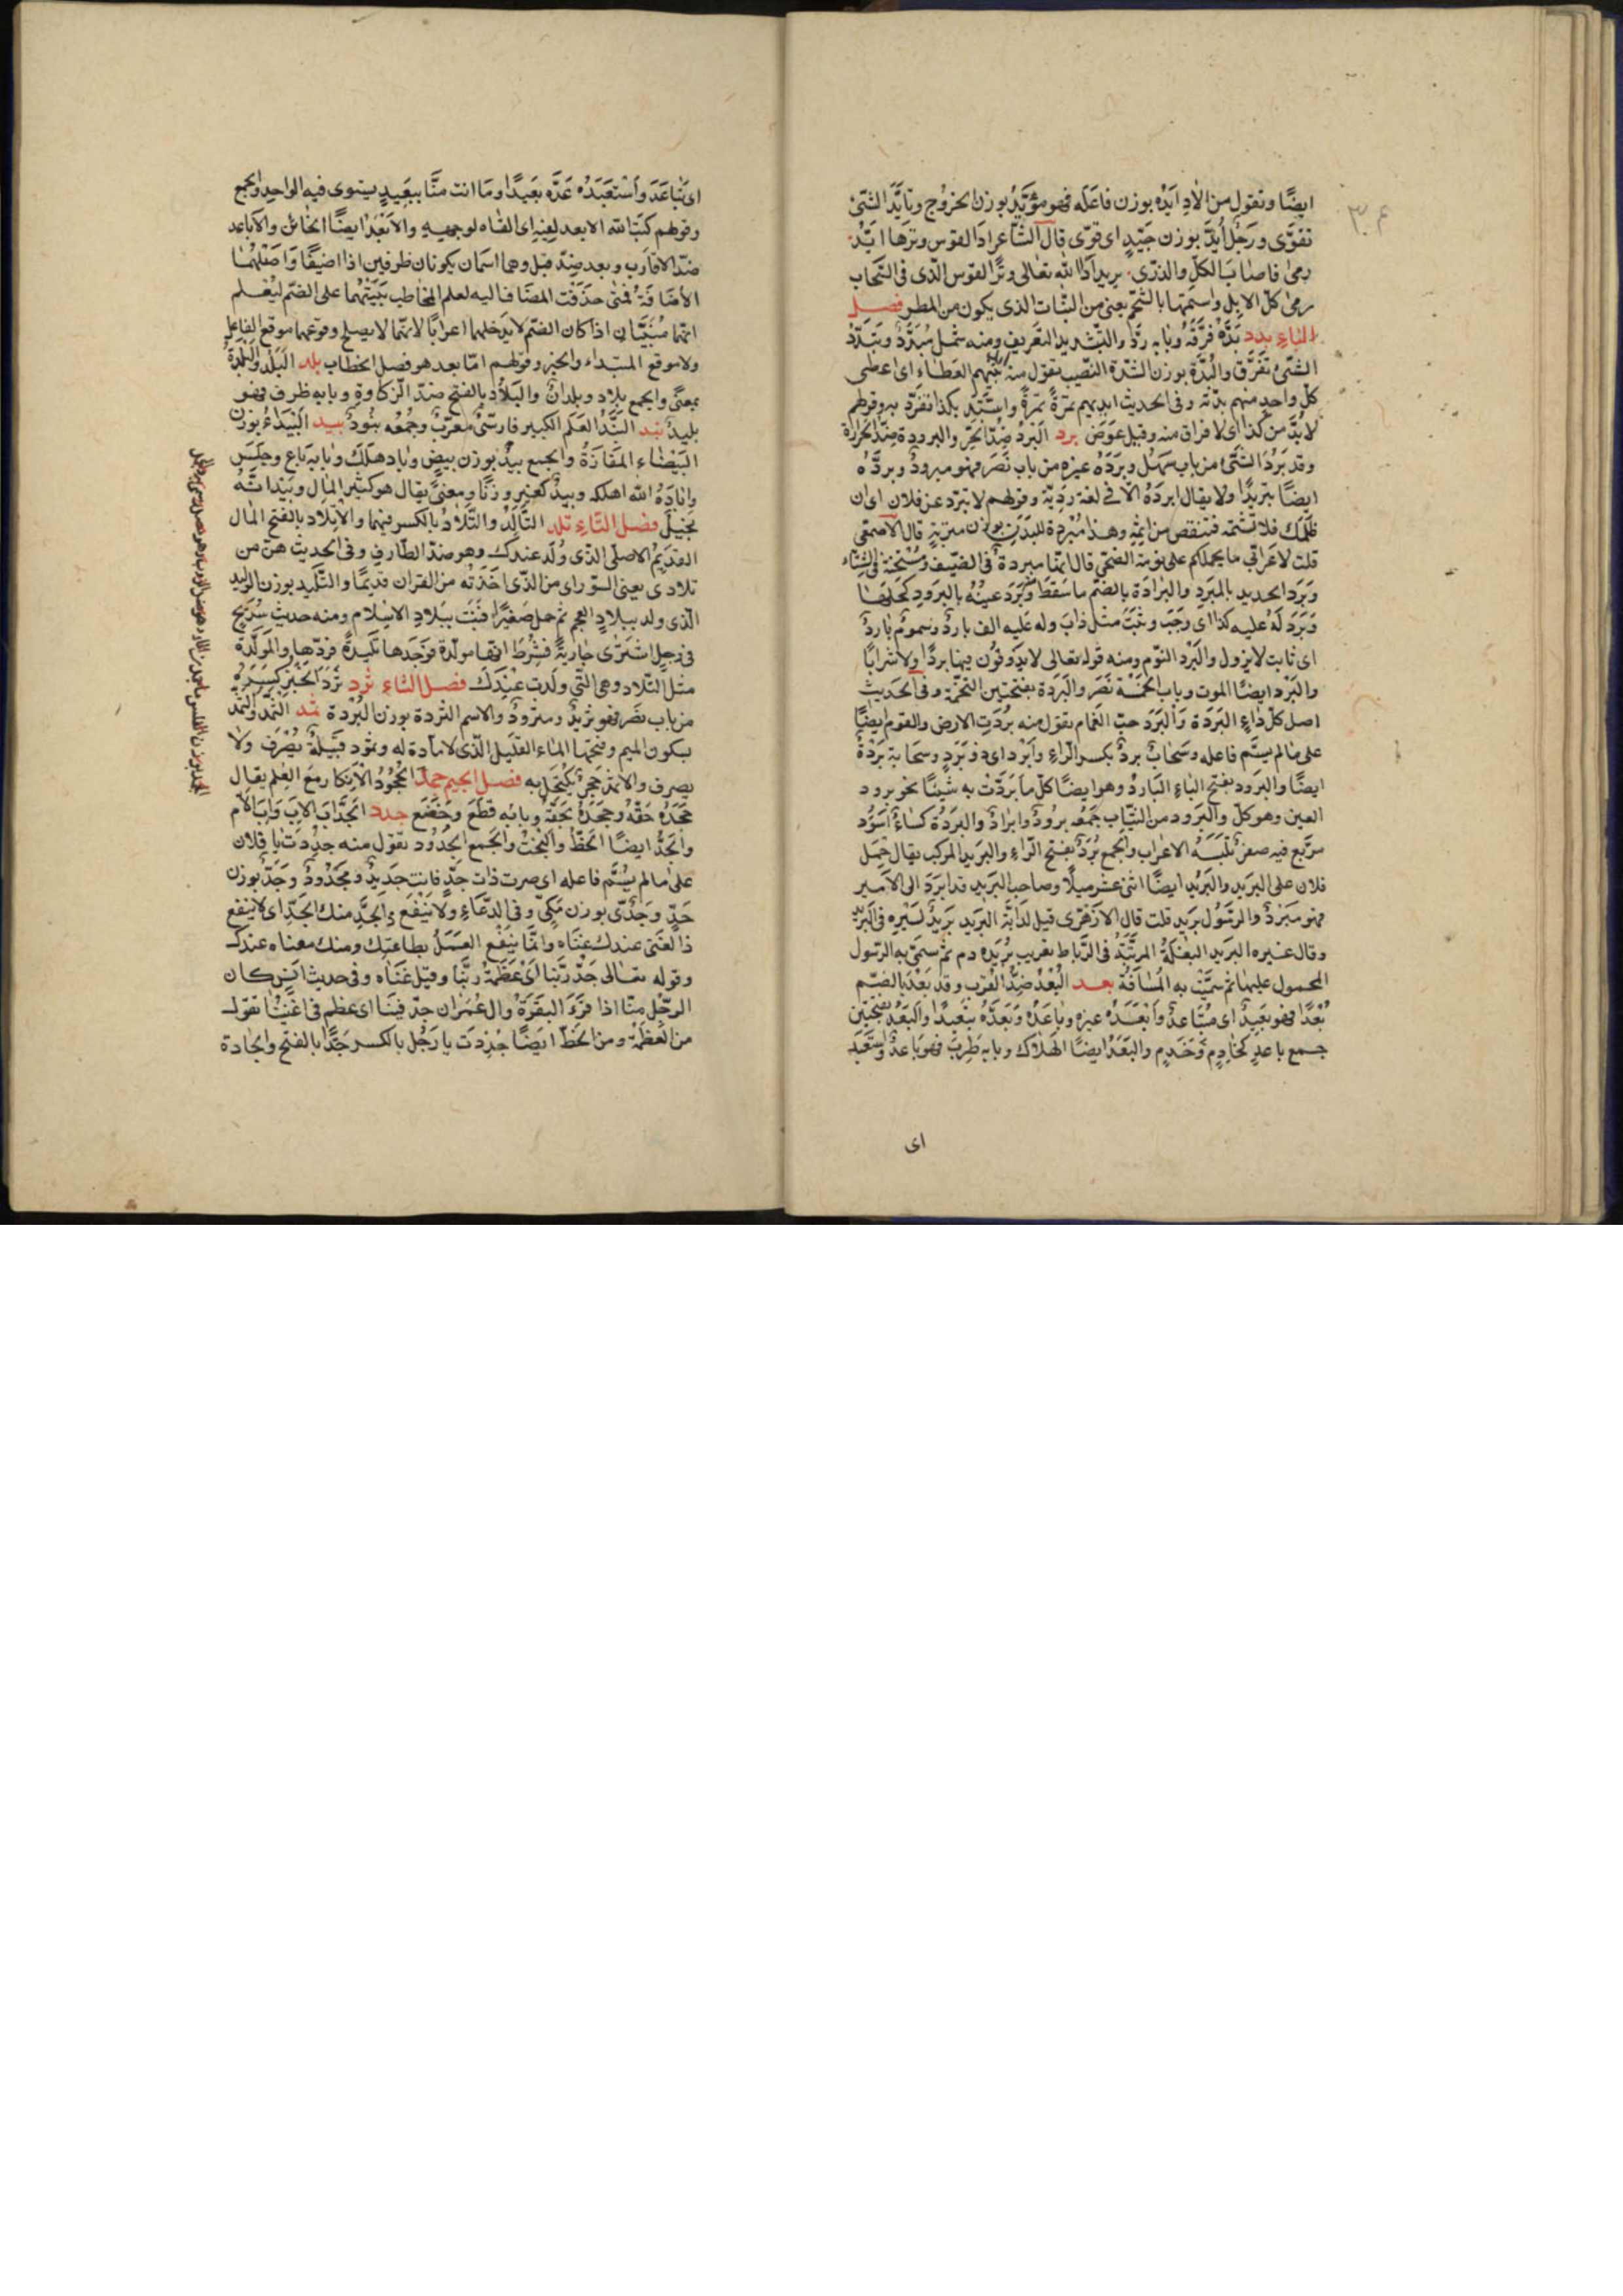 ايضًا وتقول من الاد ايّده بوزن فاعله فهو مؤيد بوزن المخرج وتأيّد الشئ
تقوّى ورجل أيّد بوزن جيّد اى قوّى قال الشاعر اذا القوس وترها ايّد
رمى فاصاب الكلى والذرى يريد اذا الله تعالى وتر القوس الذى فى السحاب
رمى كلى الابل واسنمتها بالشحم يعنى من النبات الذى يكون من المطر فصل
الباء بدد بدّه فرّقه وبابه ردّ والتبديد التفريق ومنه شمل مبدّد وتبدّد
الشئ تفرّق والبدّة بوزن الشدّة النصيب تقول منه ابدّ بينهم العطاء اى اعطى
كل واحد منهم بدّته وفى الحديث ابديهم تمرة تمرة واستبدّ بكذا تفرّد به وقولهم
لا بدّ من كذا اى لا فراق منه وقيل عوض برد البرد ضدّ الحرّ والبرودة ضدّ الحرارة
وقد برد الشئ من باب سهل وبرده غيره من باب نصر فهو مبرود وبرّده
ايضًا تبريدًا ولا يقال ابرده الا فى لغة رديّة وقولهم لا تبرّد عن فلان اى ان
ظلمك فلا تشتمه فتنقص من اثمه وهذا مبردة للبدن بوزن متربة قال الاصمعى
قلت لاعرابى ما يحملكم على نومة الضحى قال انها مبردة فى الصيف ومسخنة فى الشتاء
وبرد الحديد بالمبرد والبرادة بالضم ما سقط وبرد عينه بالبرود كحلها
وبرد له عليه كذا اى وجب وثبت مثل ذاب وله عليه الف بارد وسموم بارد
اى ثابت لا يزول والبرد النوم ومنه قوله تعالى لا يذوقون فيها بردًا ولا شرابًا
والبرد ايضًا الموت وباب الخمسة نصر والبردة بفتحتين التخمة وفى الحديث
اصل كل داء البردة والبرد حبّ الغمام تقول منه بردت الارض والقوم ايضًا
على ما لم يسم فاعله وسحاب برد بكسر الراء وابرد اى ذو برد وسحابة بردة
ايضًا والبرود بفتح الباء البارد وهو ايضًا كل ما بردت به شيئا نحو برود
العين وهو كحل والبرود من الثياب جمعه برود وابراد والبردة كساء اسود
مربع فيه صغر تلبسه الاعراب والجمع برد بفتح الراء والبريد المركب يقال حمل
فلان على البريد والبريد ايضًا اثنى عشر ميلًا وصاحب البريد قد ابرد الى الامير
فهو مبرد والرسول بريد قلت قال الازهرى قيل لدابة البريد بريد لسيره فى البريد
وقال غيره البريد البغلة المرتبة فى الرباط تعريب بريده دم ثم سمى به الرسول
المحمول عليها ثم سميت به المسافة بعد البعد ضدّ القرب وقد بعد بالضم
بعدًا فهو بعيد اى متباعد وابعده غيره وباعده وبعّده تبعيدًا والبعد بفتحتين
جمع باعد كخادم وخدم والبعد ايضًا الهلاك وبابه طرب فهو باعد واستبعد
اى
اى تباعد واستبعده عدّه بعيدًا وما انت منّا ببعيد يستوى فيه الواحد والجمع
وقولهم كبّ الله الابعد لفيه اى القاه لوجهه والابعد ايضًا الخائن والاباعد
ضدّ الاقارب وبعد ضدّ قبل وهما اسمان يكونان ظرفين اذا اضيفا واصلهما
الاضافة فمتى حذفت المضاف اليه لعلم المخاطب بنيتهما على الضم ليعلم
انهما مبنيان اذا كان الضم لا يدخلهما اعرابًا لانهما لا يصلح وقوعهما موقع الفاعل
ولا موقع المبتداء والخبر وقولهم امّا بعد هو فصل الخطاب بلد البلد والبلدة
بمعنى والجمع بلاد وبلدان والبلاد بالفتح ضدّ الزكاوة وبابه ظرف فهو
بليد بند البند العلم الكبير فارسىّ معرّب وجمعه بنود بيد البيداء بوزن
البيضاء المفازة والجمع بيد بوزن بيض وباد هلك وبابه باع وجلس
واباده الله اهلكه وبيد كغير وزنًا ومعنى يقال هو كثير المال وبيد انه
بخيل فصل التاء تلد التالد والتلاد بالكسر فيهما والاتلاد بالفتح المال
القديم الاصلى الذى ولد عندك وهو ضدّ الطارف وفى الحديث هنّ من
تلادى يعنى السور اى من الذى اخذته من القران قديمًا والتليد بوزن الوليد
الذى ولد ببلاد العجم ثم حمل صغيرًا فنبت ببلاد الاسلام ومنه حديث شريح
فى رجل اشترى جارية فشرط انها مولدة فوجدها تليدة فردّها والمولدة
مثل التلاد وهى التى ولدت عندك فصل الثاء ثرد ثرد الخبز كسره
من باب نصر فهو ثريد ومثرود والاسم الثردة بوزن البردة ثمد الثمد والثمد
بسكون الميم وفتحها الماء القليل الذى لا مادة له وثمود قبيلة يصرف ولا
يصرف والاثمد حجر يكتحل به فصل الجيم جحد الجحود الانكار مع العلم يقال
جحده حقّه وجحده بحقه وبابه قطع وخضع جدد الجدّ اب الاب واب الام
والجدّ ايضًا الحظّ والبخت والجمع الجدود تقول منه جددت يا فلان
على ما لم يسم فاعله اى صرت ذات جدّ فانت جديد ومجدود وجدّ بوزن
حدّ وجدّى بوزن مكىّ وفى الدعاء ولا ينفع ذا الجدّ منك الجدّ اى لا ينفع
ذا الغنى عندك غناه وانما ينفع العمل بطاعتك ومنك معناه عندك
وقوله تعالى جدّ ربّنا اى عظمة ربّنا وقيل غناه وفى حديث انس كان
الرجل منّا اذا قرء البقرة وال عمران جدّ فينا اى عظم فى اعيننا تقول
من العظمة ومن الحظّ ايضًا جددت يا رجل بالكسر جدًّا بالفتح والجادة